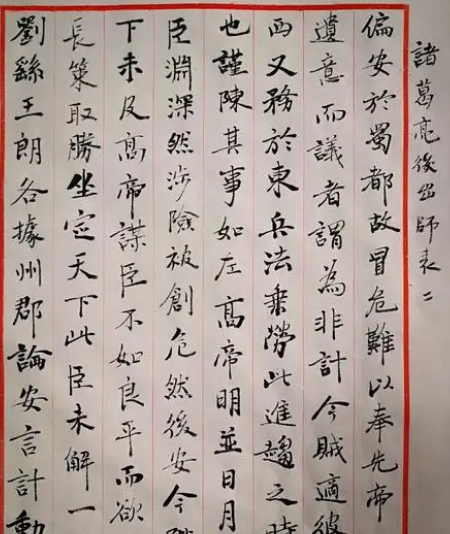 諸葛亮後出師表二
偏安於蜀都故冒危難以奉先帝
遺意而議者謂為非計今賊適彼
西又務於東兵法乗勞此進趨之時
也謹陳其事如左高帝明並日月
臣淵深然涉險被創危然後安今陛
下未及高帝謀臣不如良平而欲
長策取勝坐定天下此臣未解一
劉繇王朗各據州郡論安言計動